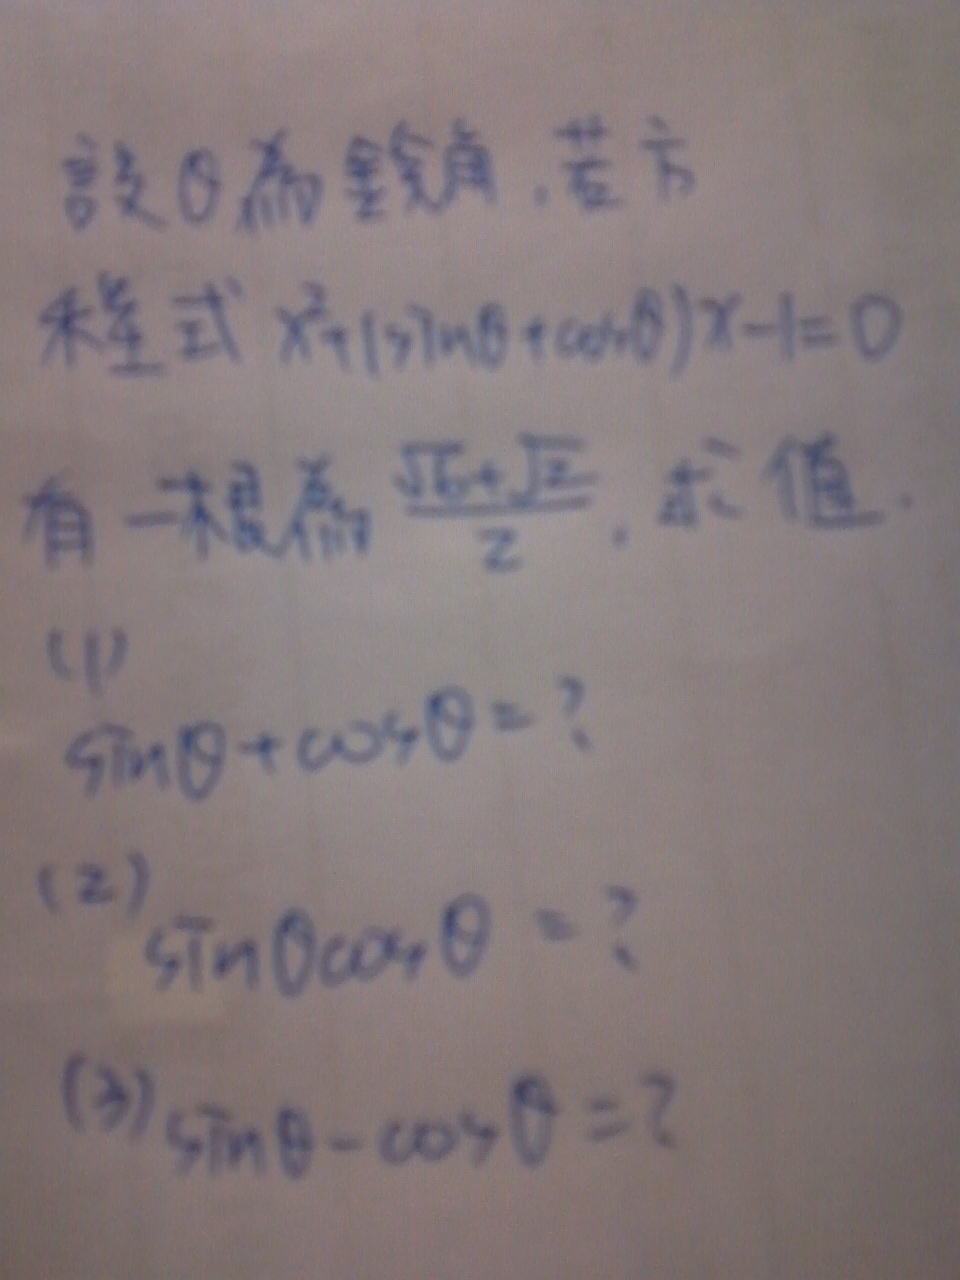 設θ為銳角,若方
程式 x²+(sinθ+cosθ)x-1=0
有一根為 (√6+√2)/2 , 求值.
(1)
sinθ+cosθ=?
(2)
sinθcosθ=?
(3) sinθ-cosθ=?